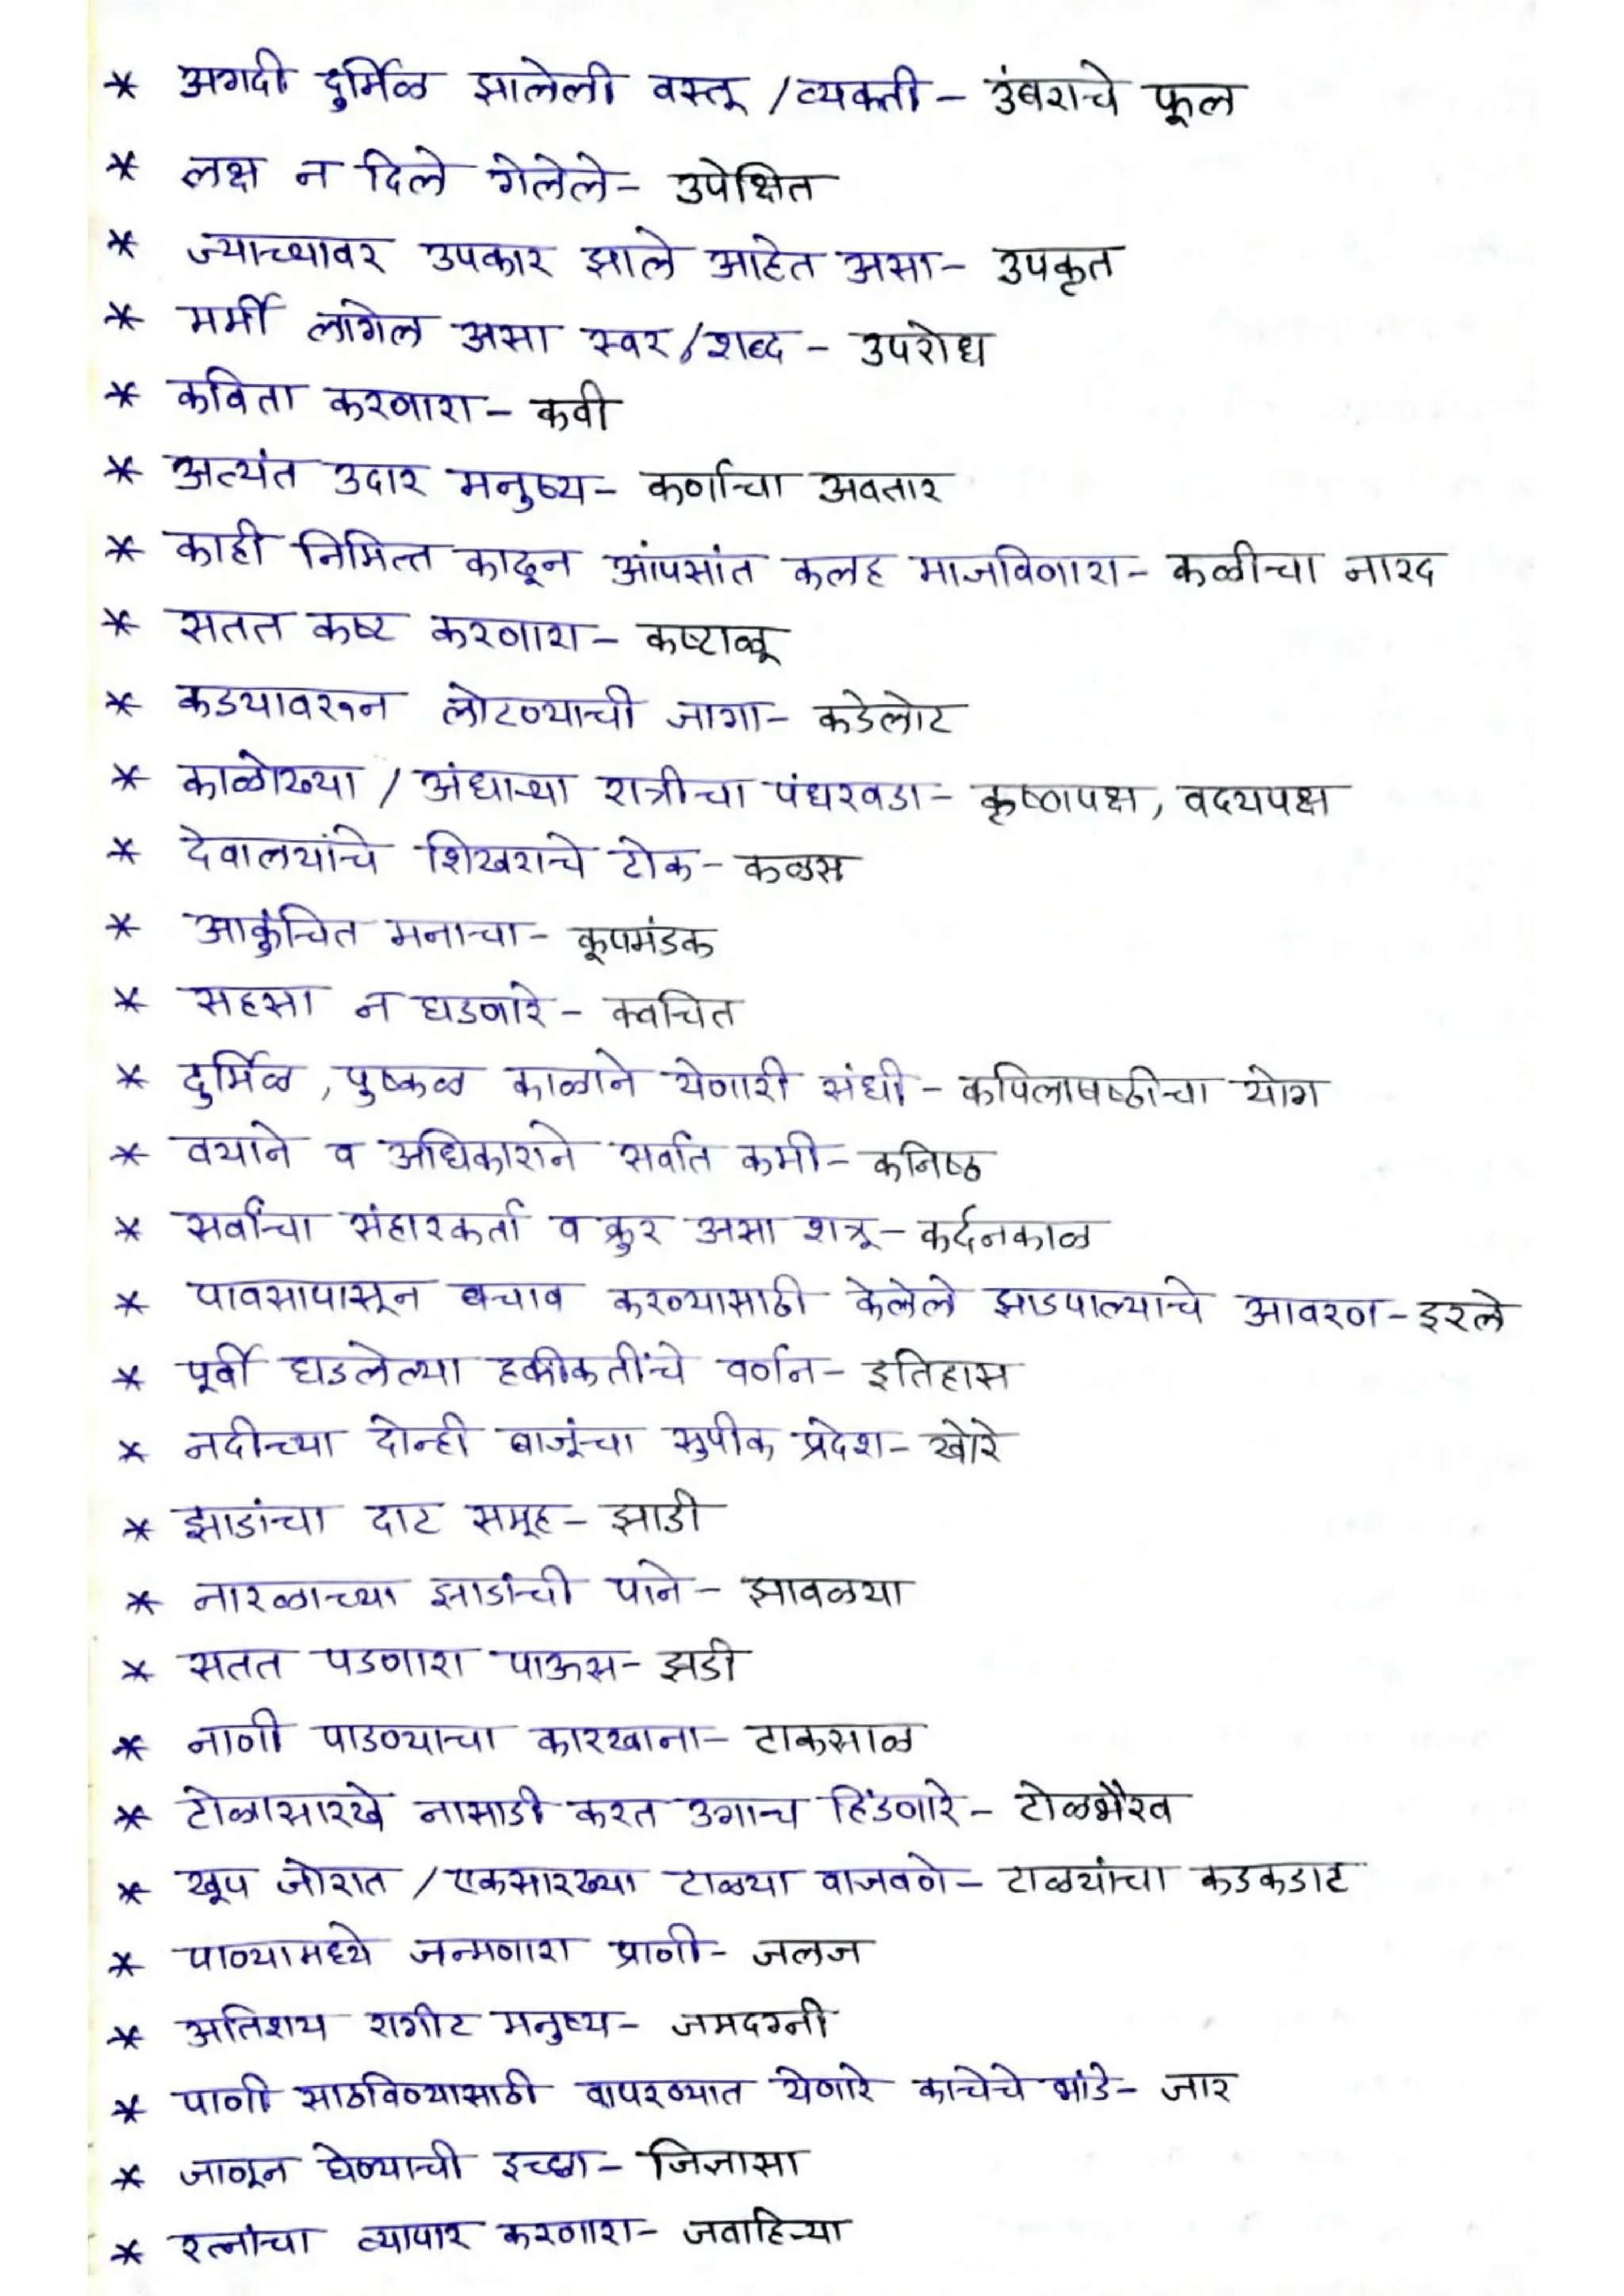 * अगदी दुर्मिळ झालेली वस्तू /व्यक्ती - उंबराचे फूल
* लक्ष न दिले गेलेले- उपेक्षित
* ज्याच्यावर उपकार झाले आहेत असा- उपकृत
* मर्मी लागेल असा स्वर/शब्द - उपरोध
* कविता करणारा- कवी
* अत्यंत उदार मनुष्य- कर्णाचा अवतार
* काही निमित्त काढून आंपसांत कलह माजविणारा- कळीचा नारद
* सतत कष्ट करणारा- कष्टाळू
* कडयावरून लोटण्याची जागा- कडेलोट
* काळोख्या / अंधाऱ्या रात्रीचा पंधरवडा- कृष्णपक्ष, वदयपक्ष
* देवालयांचे शिखराचे टोक- कळस
* आकुंचित मनाचा- कूपमंडक
* सहसा न घडणारे - क्वचित
* दुर्मिळ , पुष्कळ काळाने येणारी संधी - कपिलाषष्ठीचा योग
* वयाने व अधिकाराने सर्वात कमी- कनिष्ठ
* सर्वांचा संहारकर्ता व क्रुर असा शत्रू- कर्दनकाळ
* पावसापासून बचाव करण्यासाठी केलेले झाडपाल्याचे आवरण-इरले
* पूर्वी घडलेल्या हकीकतींचे वर्णन- इतिहास
* नदीच्या दोन्ही बाजूंचा सुपीक प्रदेश- खोरे
* झाडांचा दाट समूह- झाडी
* नारळाच्या झाडांची पाने- झावळया
* सतत पडणारा पाऊस- झडी
* नाणी पाडण्याचा कारखाना- टाकसाळ
* टोळासारखे नासाडी करत उगाच हिंडणारे- टोळभैरव
* खूप जोरात /एकसारख्या टाळया वाजवणे- टाळयांचा कडकडाट
* पाण्यामध्ये जन्मणारा प्राणी- जलज
* अतिशय रागीट मनुष्य- जमदग्नी
* पाणी साठविण्यासाठी वापरण्यात येणारे काचेचे भांडे- जार
* जाणून घेण्याची इच्छा- जिज्ञासा
* रत्नांचा व्यापार करणारा- जवाहिऱ्या